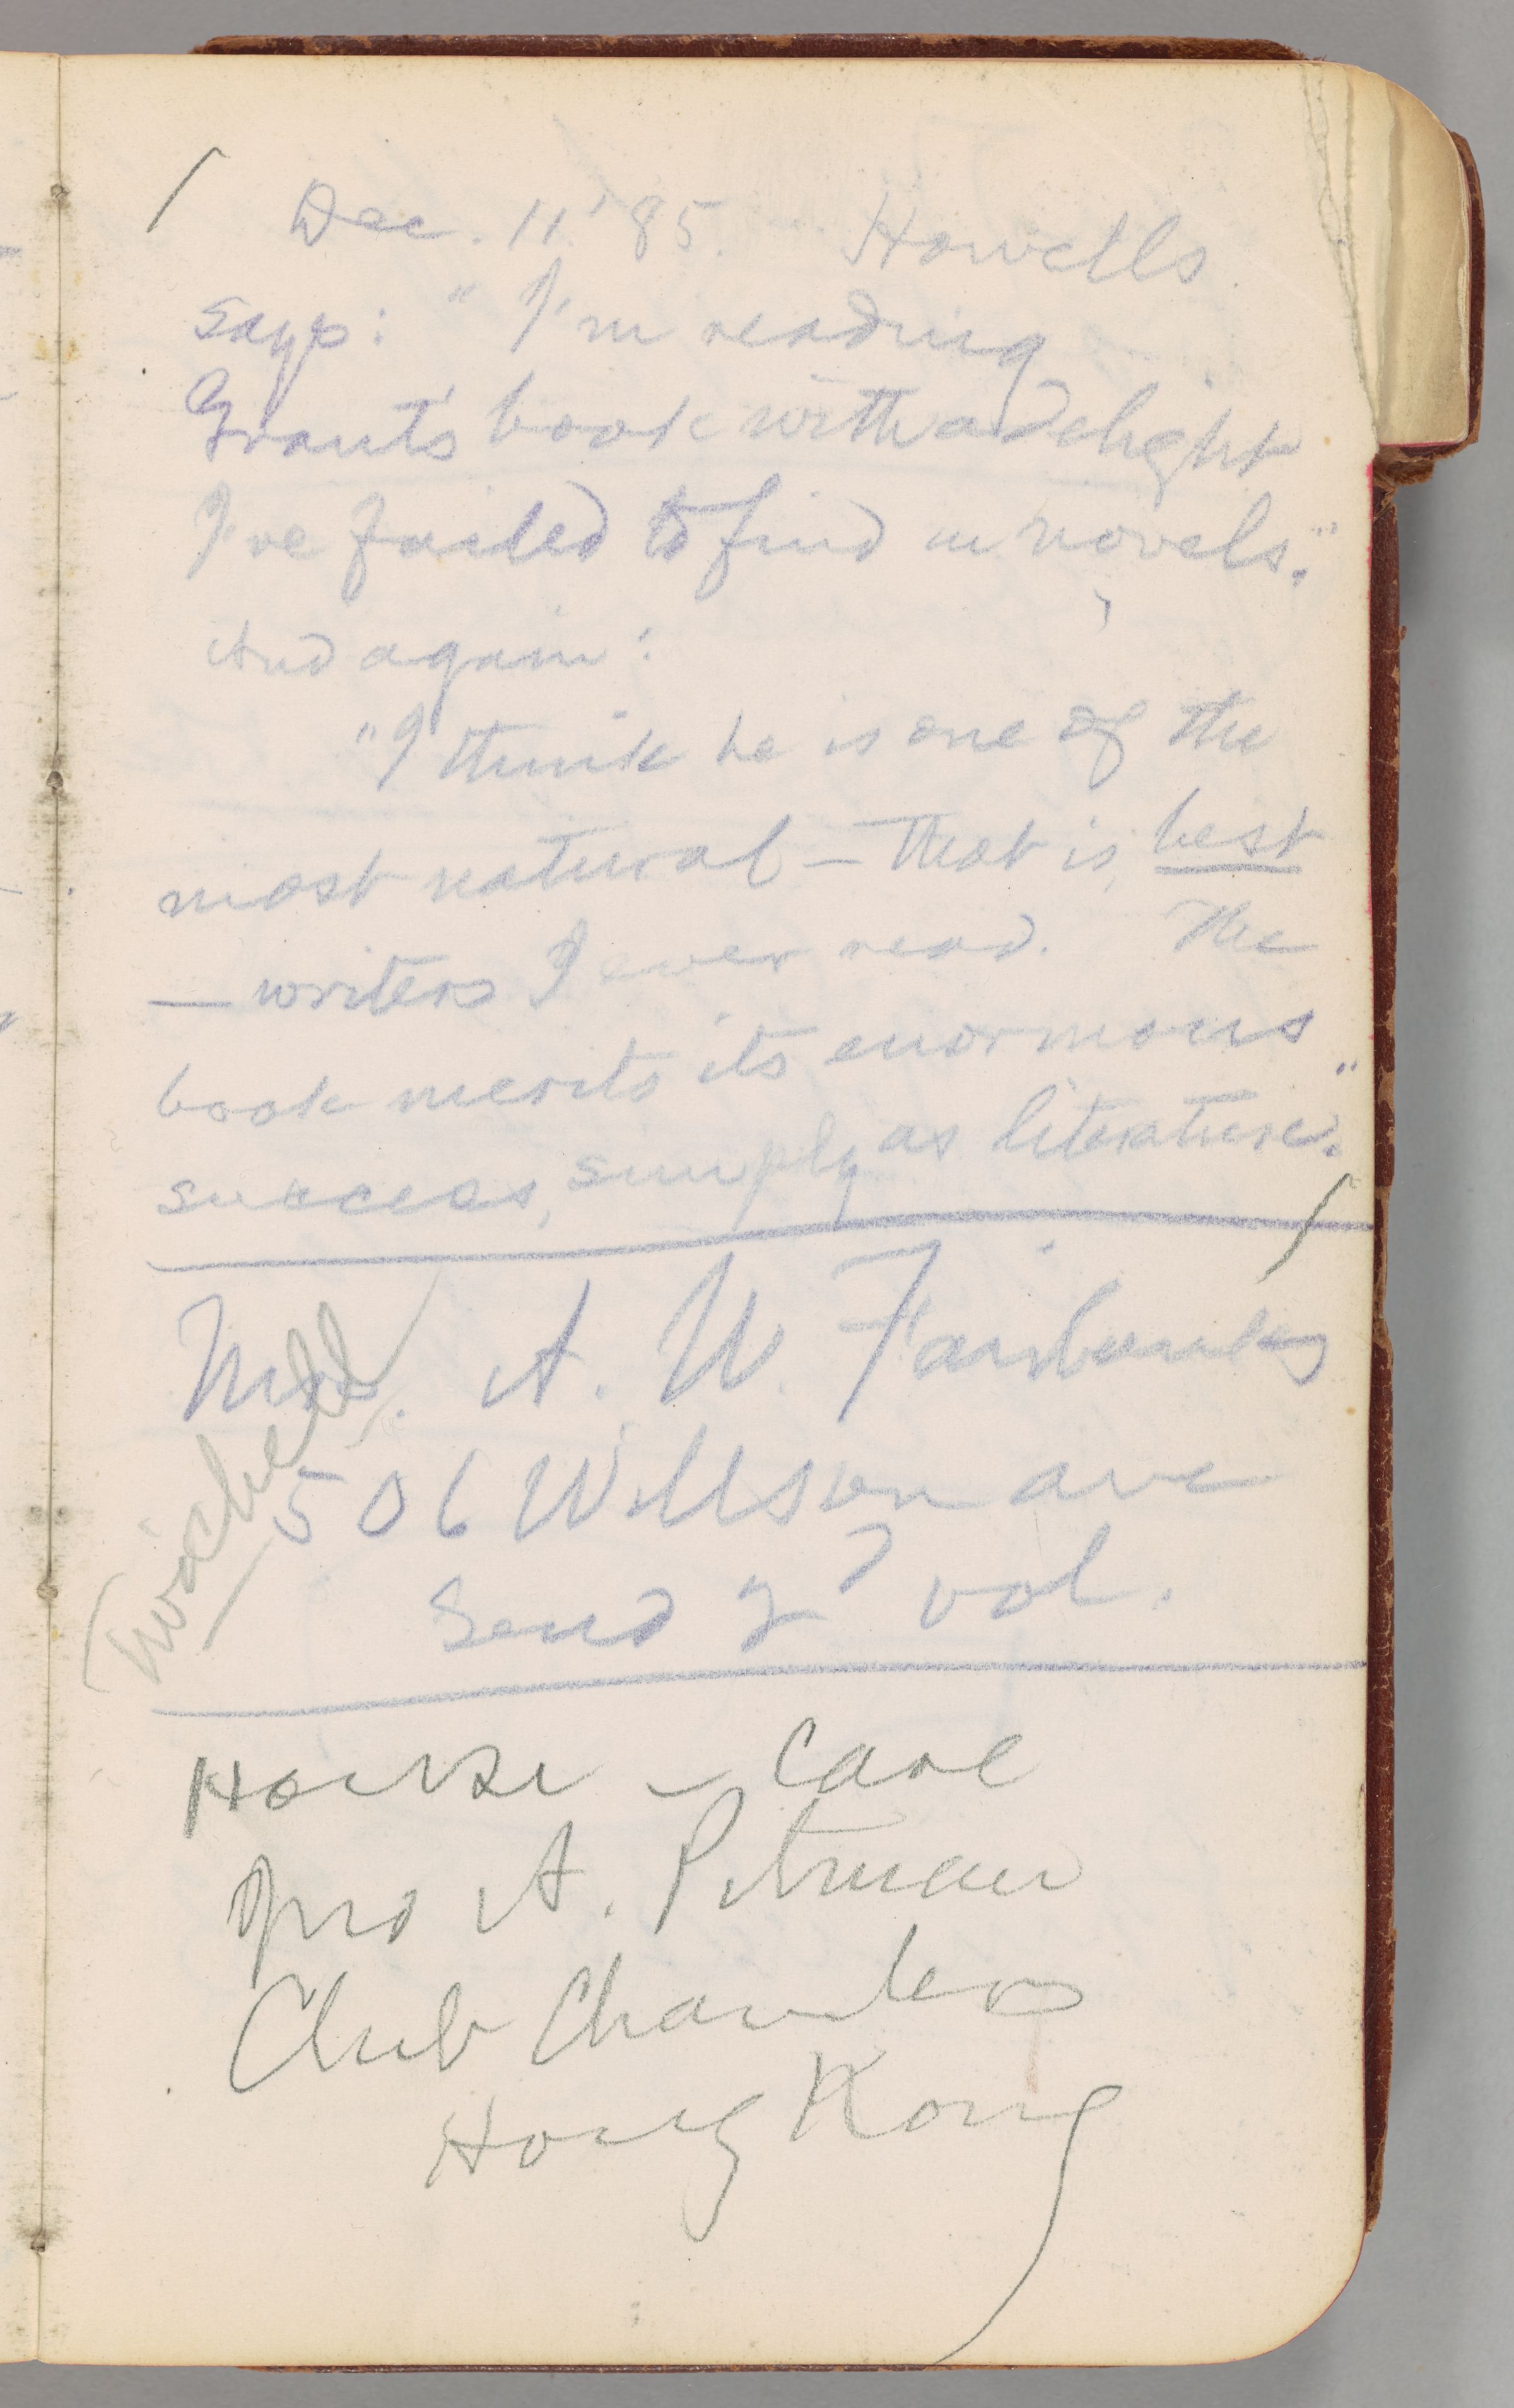 Dec. 11, '85. Howells
says: "I'm reading
Grant's book with a delight
I've failed to find in novels."
And again:
"I think he is one of the
most natural — that is, best
— writers I ever read. The
book merits its enormous
success, simply as literature."
Mrs. A. W. Fairbanks
506 Willson ave
Send 2d vol.
Twichell
House – Care
Jno A. Pitman
Club Chambers
Hong Kong